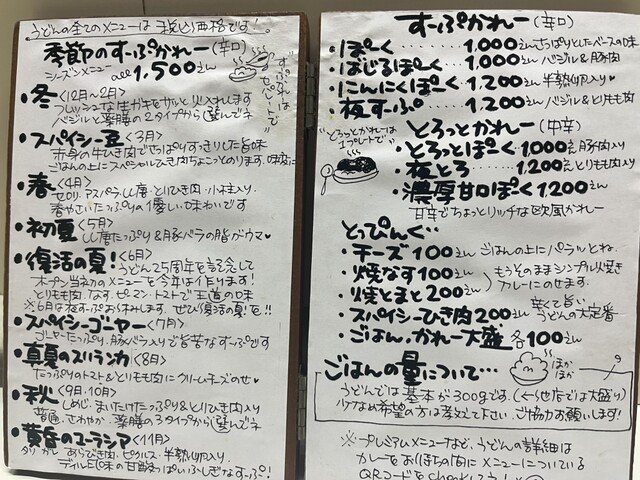 うどんの全てのメニューは税込み価格です!
季節のすーぷかれー(辛口)
シーズンメニュー all 1,500えん
すーぷかれーはセパレートで
・冬<12月~2月>
フレッシュな生ガキをサッと火入れします
バジルと薬膳の2タイプから選んでネ
・スパイシー豆<3月>
赤身の牛ひき肉でさっぱりすっきりした旨味
ごはんの上にスペシャルひき肉ちょこっとのります。味変に
・春<4月>
セロリ・アスパラ・しし唐・とりひき肉・小柱入り
春やさいたっぷりの優しい味わいです
・初夏<5月>
しし唐たっぷり&豚バラの脂がウマ♥
・復活の夏!<6月>
うどん25周年を記念して
オープン当初のメニューを今年は作ります!
とりもも肉・なす・ピーマン・トマトで王道の味
※6月は夜すーぷお休みします。ぜひ復活の夏!を!!
・スパイシーゴーヤー<7月>
ゴーヤーたっぷり、豚バラ入りで旨苦なすーぷです
・真夏のスリランカ<8月>
たっぷりのトマト&とりもも肉にクリームチーズのせ♥
・秋<9月・10月>
しめじ・まいたけたっぷり&とりひき肉入り
普通、さわやか、薬膳の3タイプから選んでネ
・黄昏のユーラシア<11月>
あらびき肉、ピクルス・半熟卵入り
ディル圧味の甘酸っぱいふしぎなすーぷ!
すーぷかれー(辛口)
・ぽーく 1,000えん さらっぱりとしたベースの味
・ばじるぽーく 1,000えん バジル&豚肉
・にんにくぽーく 1,200えん 半熟卵入り♥
・夜すーぷ 1,200えん バジル&とりもも肉
とろっとかれー(中辛)
"とろっとかれーは1プレートで"
・とろっとぽーく 1,000えん 豚肉入り
・夜とろ 1,200えん とりもも肉入り
・濃厚甘口ぽーく 1200えん
甘辛でちょっとリッチな欧風カレー
とっぴんぐ…
・チーズ 100えん ごはんの上にパラッとね
・焼なす 100えん
・焼とまと 200えん
もうそのままシンプル焼き
カレーにのせます
・スパイシーひき肉 200えん 辛くて旨い うどんの大定番
・ごはん、かれー大盛 各100えん
ごはんの量について…
ほか ほか
うどんでは基本が300gです。(←他店では大盛り)
少なめ希望の方は教えて下さい。ご協力お願いします!
※プレミアムメニューなど、うどんの詳細は
カレーをお待ちの間にメニューについている
QRコードをcheckして